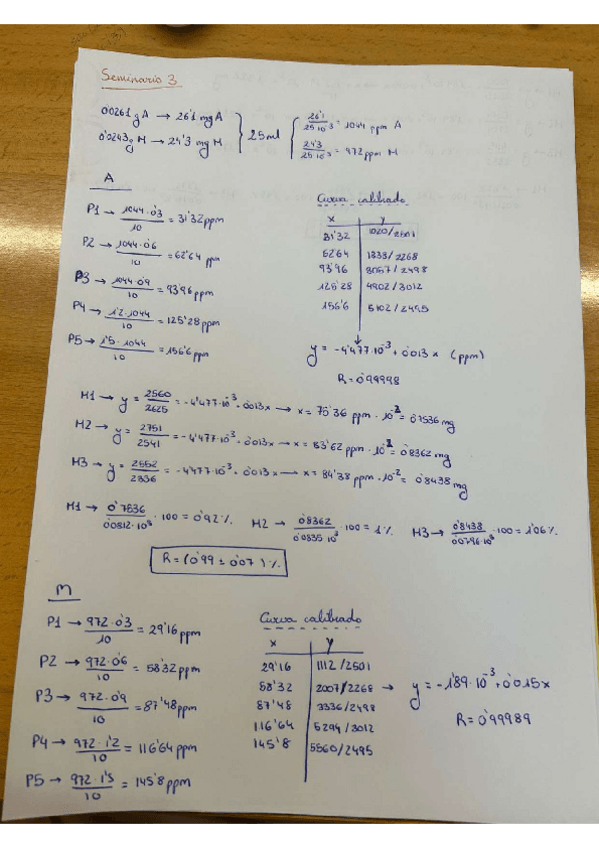 Seminario 3
0'0261 g A → 26'1 mg A
0'0243 g M → 24'3 mg M
25 ml
26'1 / 25·10⁻³ = 1044 ppm A
24'3 / 25·10⁻³ = 972 ppm M
A
P1 → 1044·0'3 / 10 = 31'32 ppm
P2 → 1044·0'6 / 10 = 62'64 ppm
P3 → 1044·0'9 / 10 = 93'96 ppm
P4 → 1'2·1044 / 10 = 125'28 ppm
P5 → 1'5·1044 / 10 = 156'6 ppm
Curva calibrado
x y
31'32 1020/2501
62'64 1833/2268
93'96 3057/2498
125'28 4902/3012
156'6 5102/2495
y = -4'477·10⁻³ + 0'013 x (ppm)
R = 0'99998
M1 → y = 2560 / 2625 = -4'477·10⁻³ + 0'013x → x = 75'36 ppm · 10⁻² = 0'7536 mg
M2 → y = 2751 / 2541 = -4'477·10⁻³ + 0'013x → x = 83'62 ppm · 10⁻² = 0'8362 mg
M3 → y = 2552 / 2336 = -4'477·10⁻³ + 0'013x → x = 84'38 ppm · 10⁻² = 0'8438 mg
M1 → 0'7536 / 0'0812·10³ · 100 = 0'92 % M2 → 0'8362 / 0'0835·10³ · 100 = 1 % M3 → 0'8438 / 0'0796·10³ · 100 = 1'06 %
R = (0'99 ± 0'07) %
M
P1 → 972·0'3 / 10 = 29'16 ppm
P2 → 972·0'6 / 10 = 58'32 ppm
P3 → 972·0'9 / 10 = 87'48 ppm
P4 → 972·1'2 / 10 = 116'64 ppm
P5 → 972·1'5 / 10 = 145'8 ppm
Curva calibrado
x y
29'16 1112/2501
58'32 2007/2268
87'48 3336/2498
116'64 5294/3012
145'8 5560/2495
→ y = -1'89·10⁻³ + 0'015x
R = 0'99989